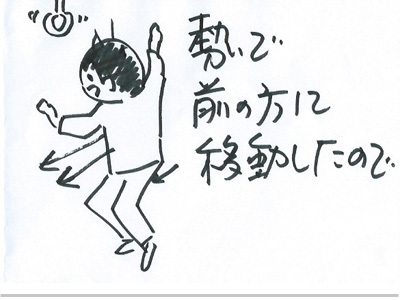 勢いで
前の方に
移動したので